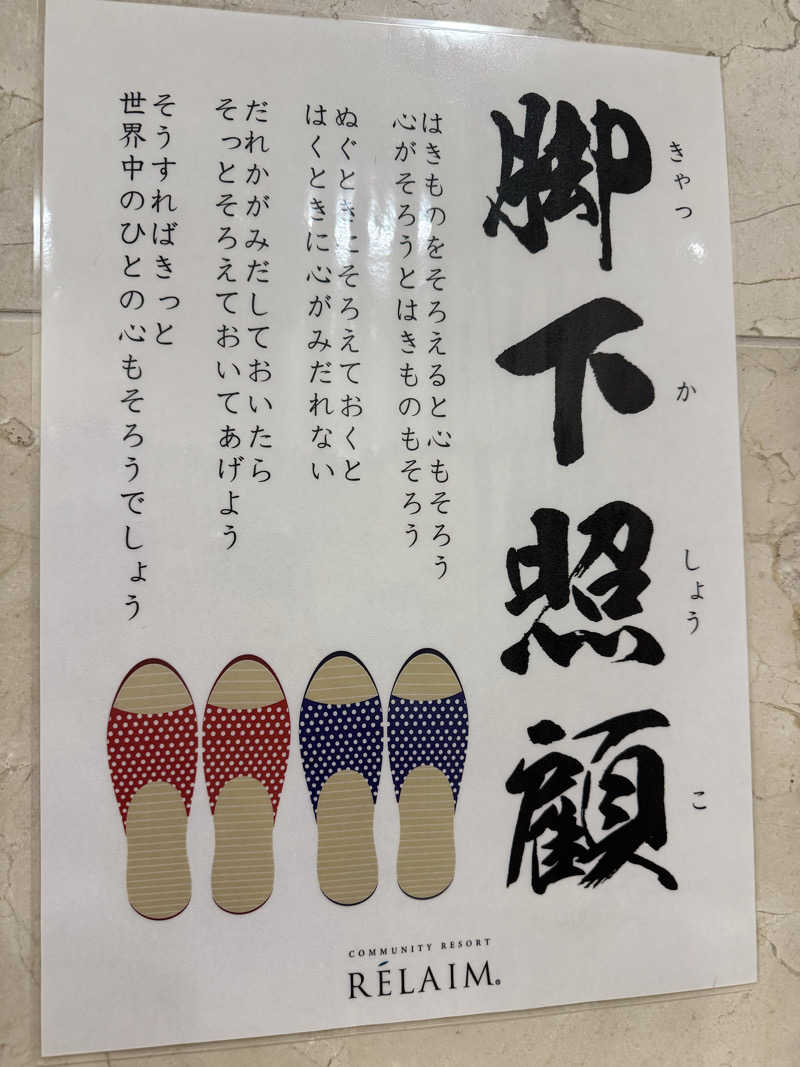 脚下照顧
きゃっ か しょう こ
はきものをそろえると心もそろう
心がそろうとはきものもそろう
ぬぐときにそろえておくと
はくときに心がみだれない
だれかがみだしておいたら
そっとそろえておいてあげよう
そうすればきっと
世界中のひとの心もそろうでしょう
COMMUNITY RESORT
RÉLAIM®